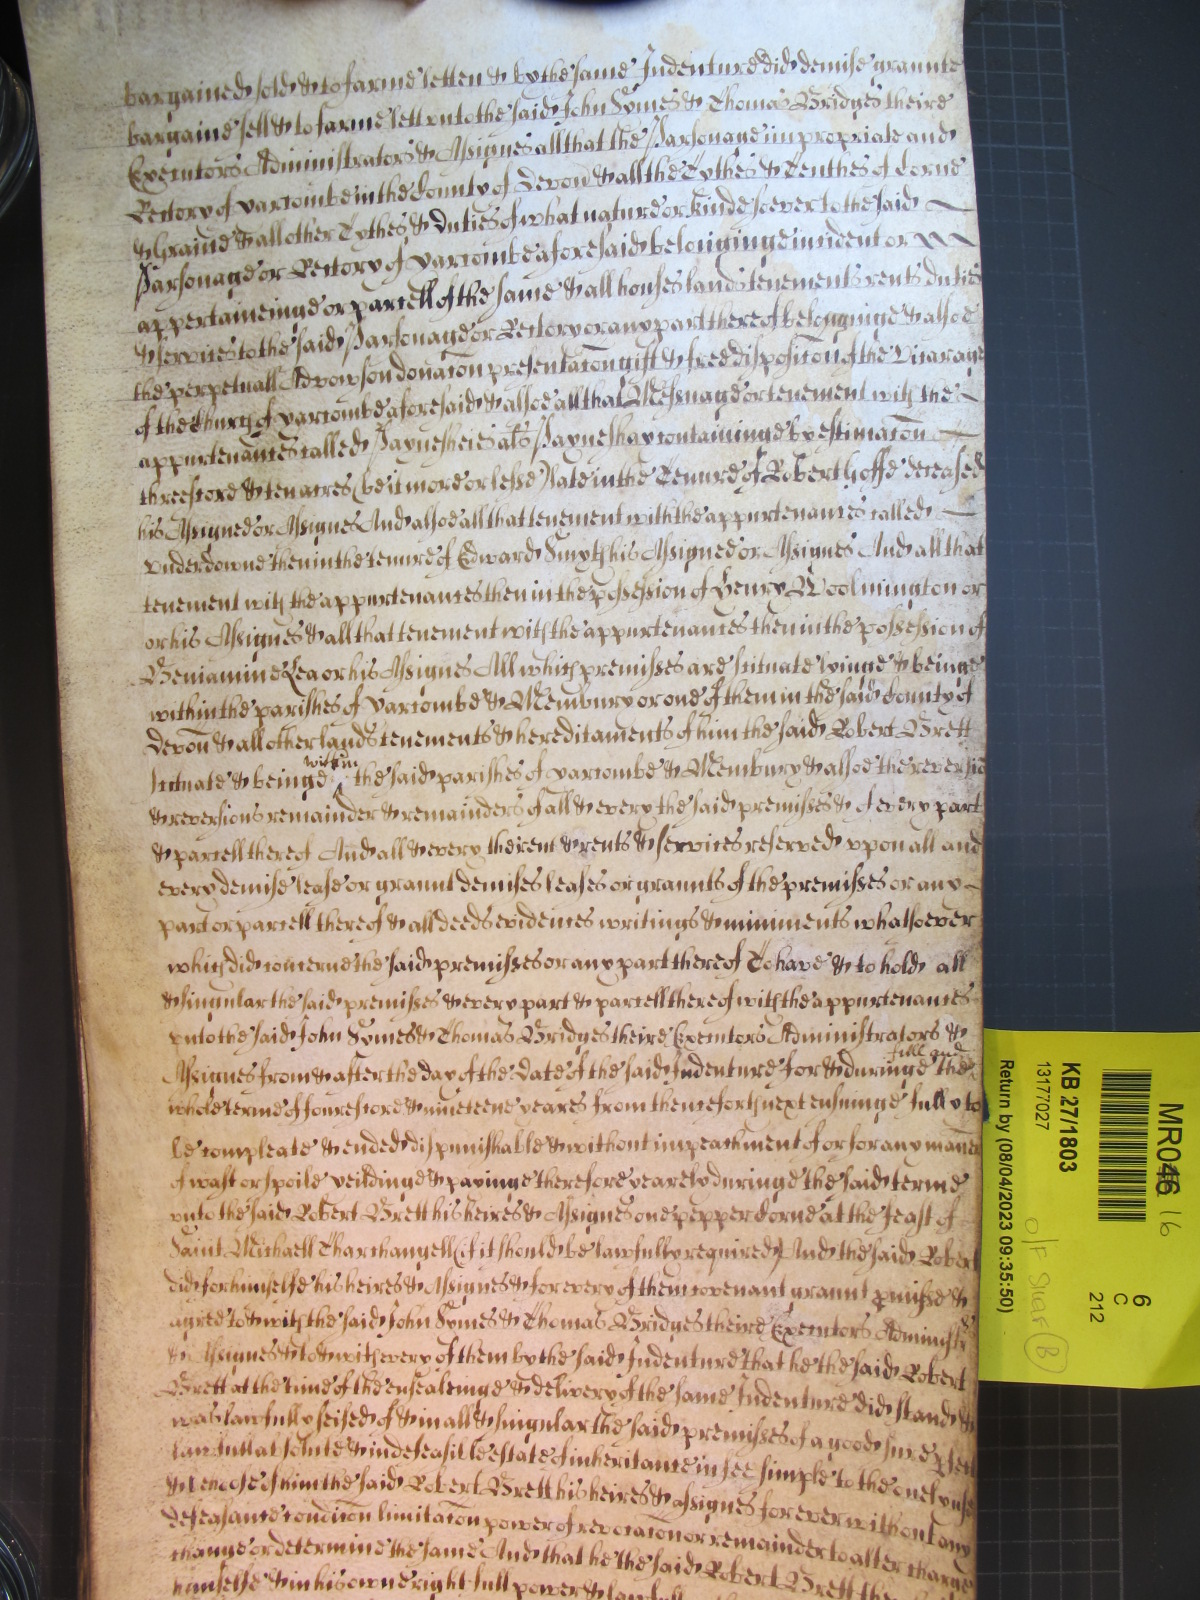 bargained sold & to farme letten & by the same Indenture did demise graunte
bargaine sell & to farme lett unto the said John Symes & Thomas Bridges theire
Executors Administrators & Assignes all that the Parsonage impropriate and
Rectory of yarcombe in the County of Devon & all the Tythes & Tenthes of Corne
& Graine & all other Tythes & duties of what nature or kinde soever to the said
Parsonage or Rectory of yarcombe aforesaid belonginge incident or
appertaineinge or parcell of the same & all houses lands tenements rents duties
& services to the said Parsonage or Rectory or any part thereof belonginge & alsoe
the perpetuall Advowson donacon presentacon gift & free disposicon of the Vicarage
of the Church of yarcombe aforesaid & alsoe all that Messuage or tenement with the
appurtenances called Paynesheies als Payneshay containinge by estimacon
threescore & ten acres (be it more or lesse) late in the Tenure of Robert Goffe deceased
his Assignee or Assignes And alsoe all that tenement with the appurtenances called
Underdowne then in the tenure of Edward Smyth his Assignee or Assignes And all that
tenement with the appurtenances then in the possession of Henry Woolmington or
or his Assignes & all that tenement with the appurtenances then in the possession of
Beniamine Lea or his Assignes All which premisses are scituate lyinge & beinge
within the parishes of yarcombe & Membury or one of them in the said County of
Devon & all other lands tenements & hereditaments of him the said Robert Brett
scituate & beinge within the said parishes of yarcombe & Membury & alsoe the reversion
& reversions remainder & remainders of all & every the said premisses & of every part
& parcell thereof And all & every the rent & rents & services reserved upon all and
every demise lease or graunt demises leases or graunts of the premisses or any
part or parcell thereof & all deeds evidences writings & miniments whatsoever
which did concerne the said premisses or any part thereof To have & to hold all
& singular the said premisses & every part & parcell thereof with the appurtenances
unto the said John Symes & Thomas Bridges theire Executors Administrators &
Assignes from & after the day of the date of the said Indenture for & duringe the full and
whole terme of fourescore & nineteene yeares from thenceforth next ensuinge fully to
be compleate & ended dispunishable & without impeachment of or for any manner
of wast or spoile yeildinge & payinge therefore yearely duringe the said terme
unto the said Robert Brett his heires & Assignes one pepper Corne at the feast of
Saint Michaell Tharchangell (if it should be lawfully required) And the said Robert
did for himselfe his heires & Assignes & for every of them covenant graunt pmisse &
agree to & with the said John Symes & Thomas Bridges theire Executors Administrs
& Assignes & to & with every of them by the said Indenture that he the said Robert
Brett at the time of the ensealeinge & delivery of the same Indenture did stand &
was lawfully seised of & in all & singular the said premisses of a good sure pfect
lawfull absolute & indefeasible estate of inheritance in fee simple to the onely use
& behoofe of him the said Robert Brett his heires & assignes for ever without any
defeasance condicon limitacon power of revocacon or remainder to alter charge
change or determine the same And that he the said Robert Brett
himselfe & in his owne right full power & lawfull
MR046 16
6
C
212
KB 27/1803
13177027
Return by (08/04/2023 09:35:50)
B